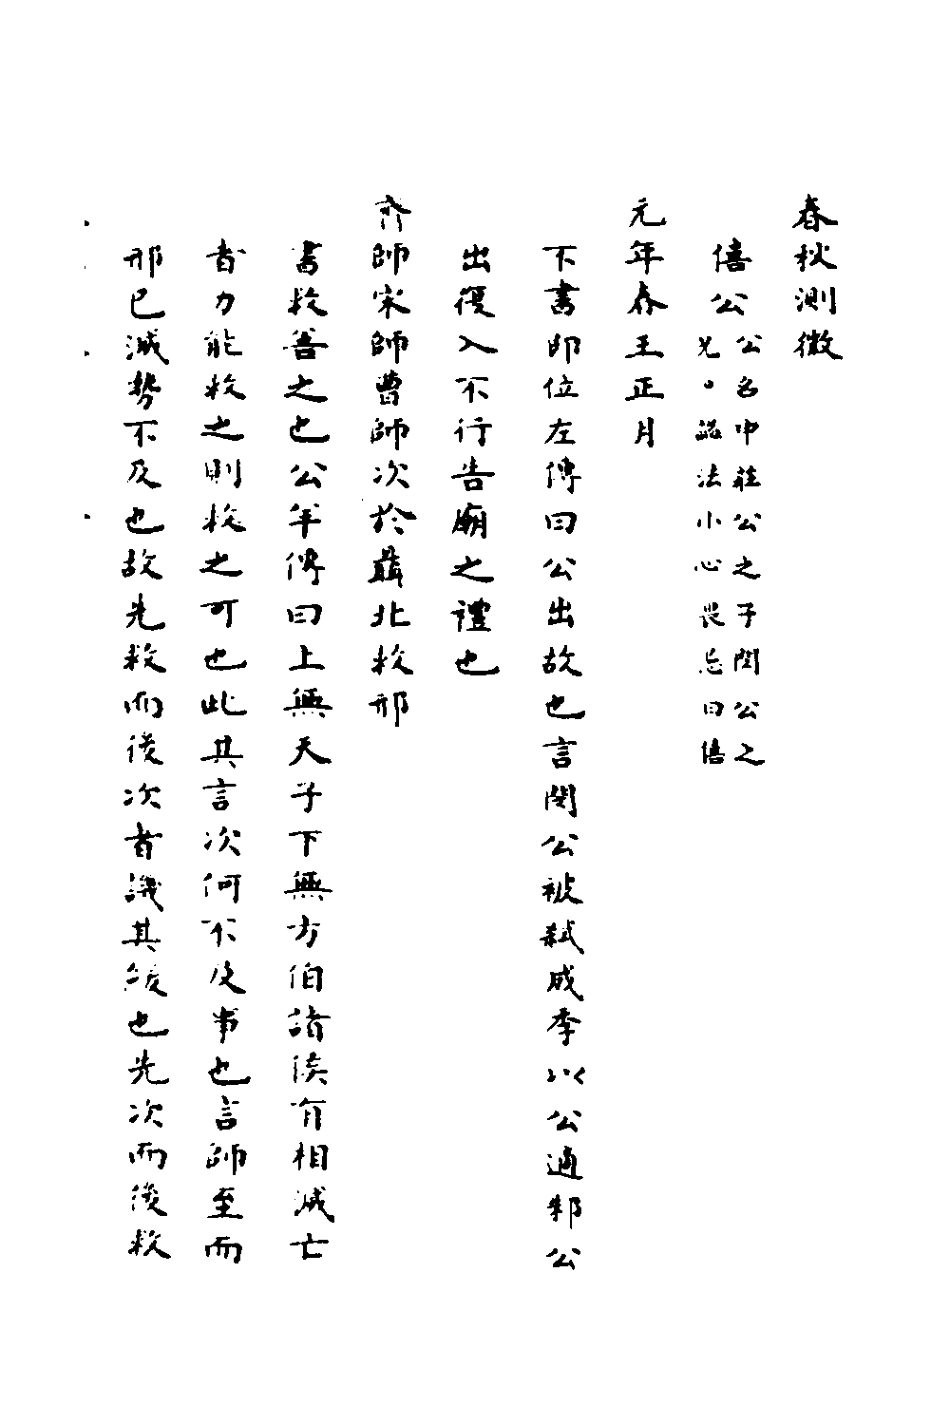 春秋測微
僖公 公名申莊公之子閔公之
兄。諡法小心畏忌曰僖
元年春王正月
不書即位左傳曰公出故也言閔公被弒成季以公適邾公
出復入不行告廟之禮也
齊師宋師曹師次於聶北救邢
書救善之也公羊傳曰上無天子下無方伯諸侯有相滅亡
者力能救之則救之可也此其言次何不及事也言師至而
邢已滅勢不及也故先救而後次者譏其緩也先次而後救